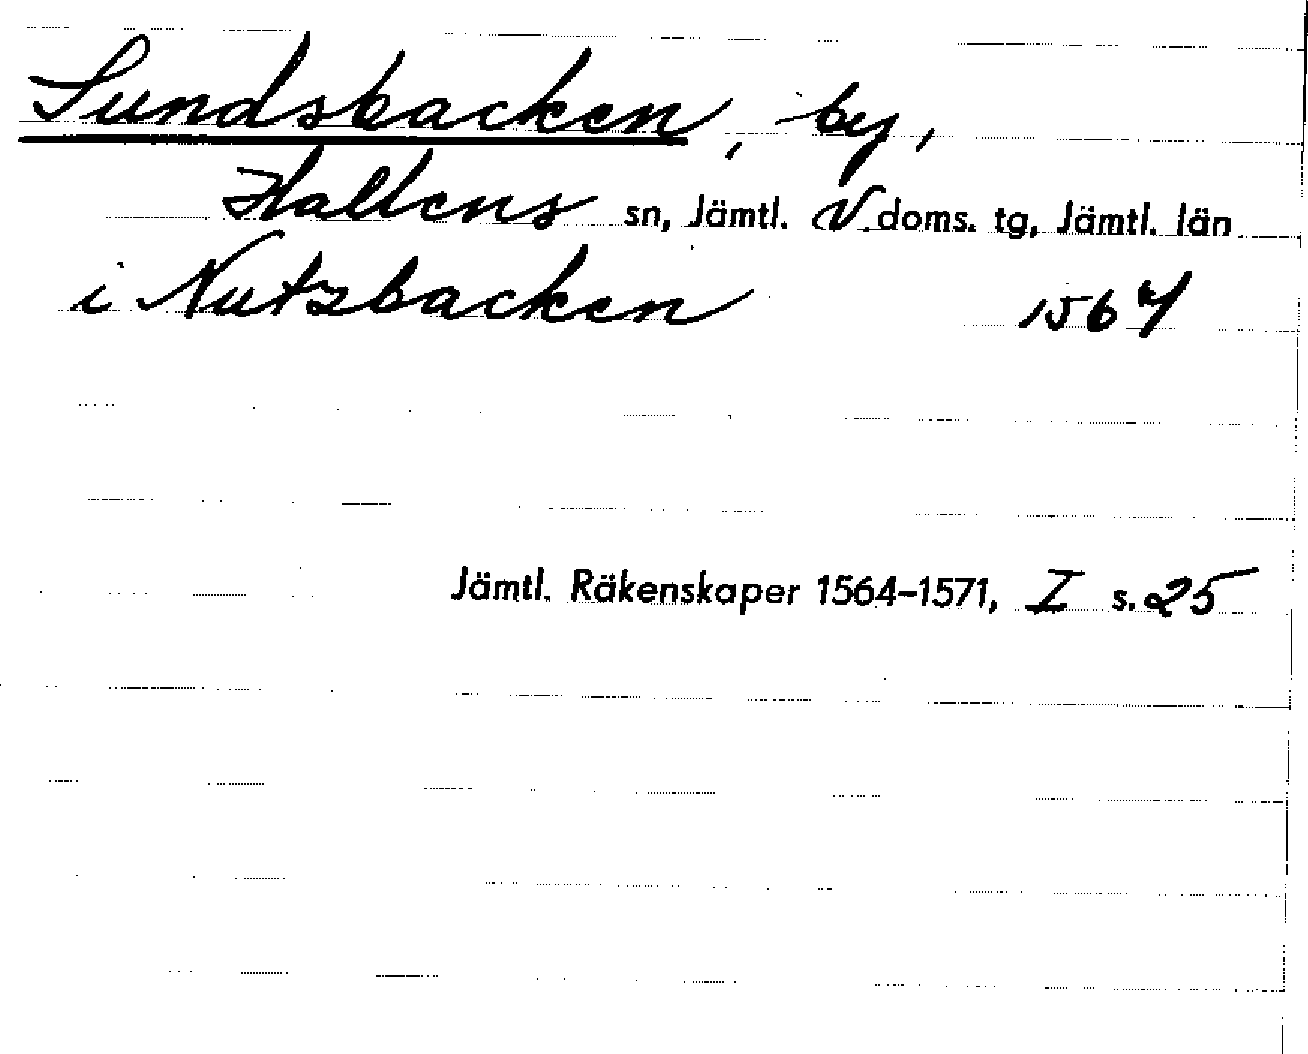 Sundsbacken, by,
Hallens sn, Jämtl. V. doms. tg, Jämtl. län
i Nutzbacken 1567
Jämtl. Räkenskaper 1564–1571, I s. 25